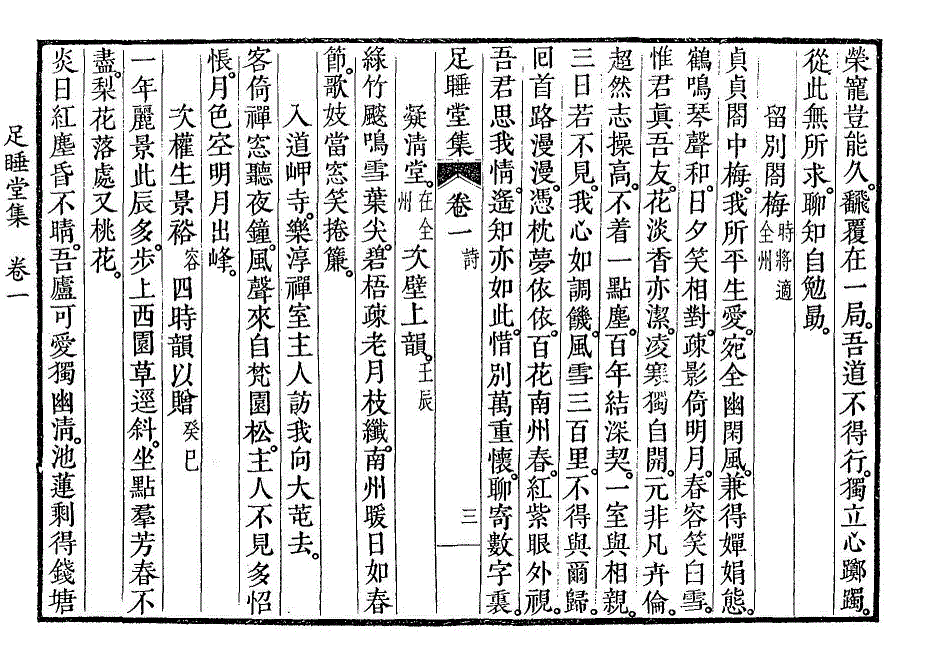 榮寵豈能久。飜覆在一局。吾道不得行。獨立心躑躅。
從此無所求。聊知自勉勗。
留別閤梅時將適全州
貞貞閤中梅。我所平生愛。宛全幽閑風。兼得嬋娟態。
鶴鳴琴聲和。日夕笑相對。疎影倚明月。春容笑白雪。
惟君眞吾友。花淡香亦潔。凌寒獨自開。元非凡卉倫。
超然志操高。不着一點塵。百年結深契。一室與相親。
三日若不見。我心如調饑。風雪三百里。不得與爾歸。
回首路漫漫。憑枕夢依依。百花南州春。紅紫眼外視。
吾君思我情。遙知亦如此。惜別萬重懷。聊寄數字裏。
足睡堂集 卷一 詩 三
凝淸堂。在全州次壁上韻。壬辰
綠竹颼鳴雪葉尖。碧梧疎老月枝纖。南州暖日如春
節。歌妓當窓笑捲簾。
入道岬寺。樂淳禪室主人訪我向大芚去。
客倚禪窓聽夜鐘。風聲來自梵園松。主人不見多怊
悵。月色空明月出峰。
次權生景裕容四時韻以贈癸巳
一年麗景此辰多。步上西園草逕斜。坐點羣芳春不
盡。梨花落處又桃花。
炎日紅塵昏不晴。吾廬可愛獨幽淸。池蓮剩得錢塘
足睡堂集 卷一